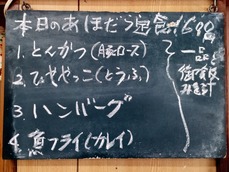 本日のあほだら定食 680
1. とんかつ(豚ロース)
2. ひややっこ(とうふ)
3. ハンバーグ
4. 魚フライ(カレイ)
一品と
御飯
みそ汁